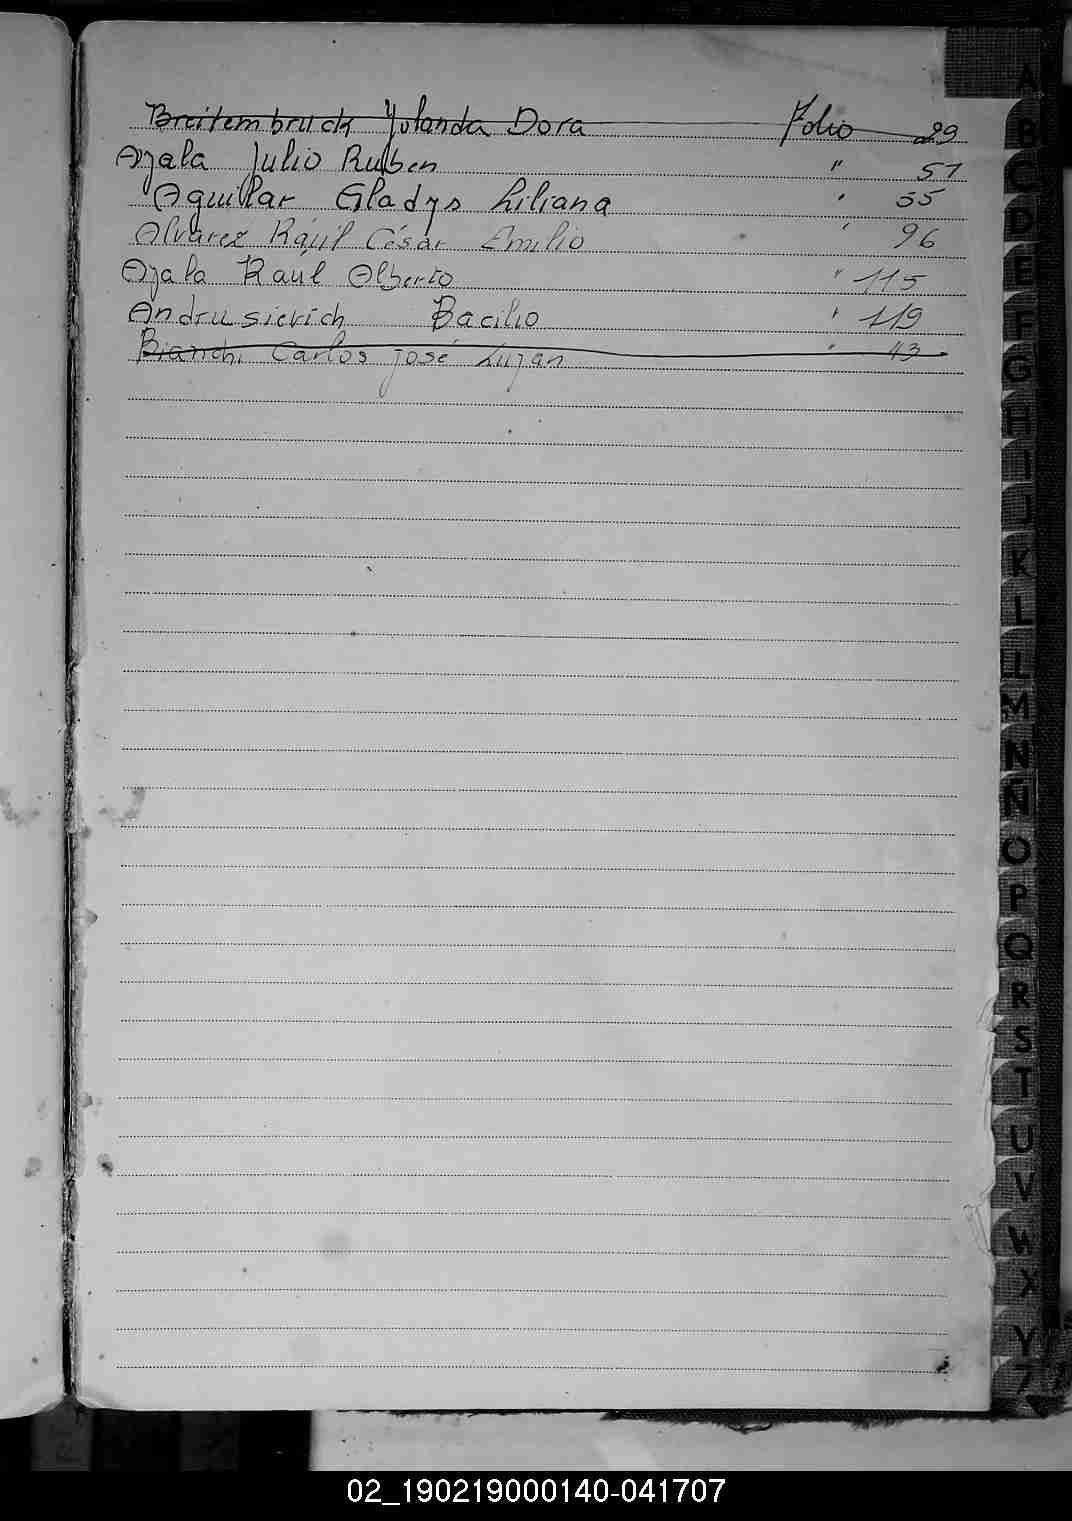 Breitembruck Yolanda Dora Folio 29
Ayala Julio Ruben " 51
Aguillar Gladys Liliana " 55
Alvarez Raúl César Emilio " 96
Ayala Raúl Alberto " 115
Andrusievich Bacilio " 119
Bianchi Carlos José Lujan " 43
A
B
C
D
E
F
G
H
I
J
K
L
L
M
N
Ñ
O
P
Q
R
S
T
U
V
W
X
Y
Z
02_190219000140-041707